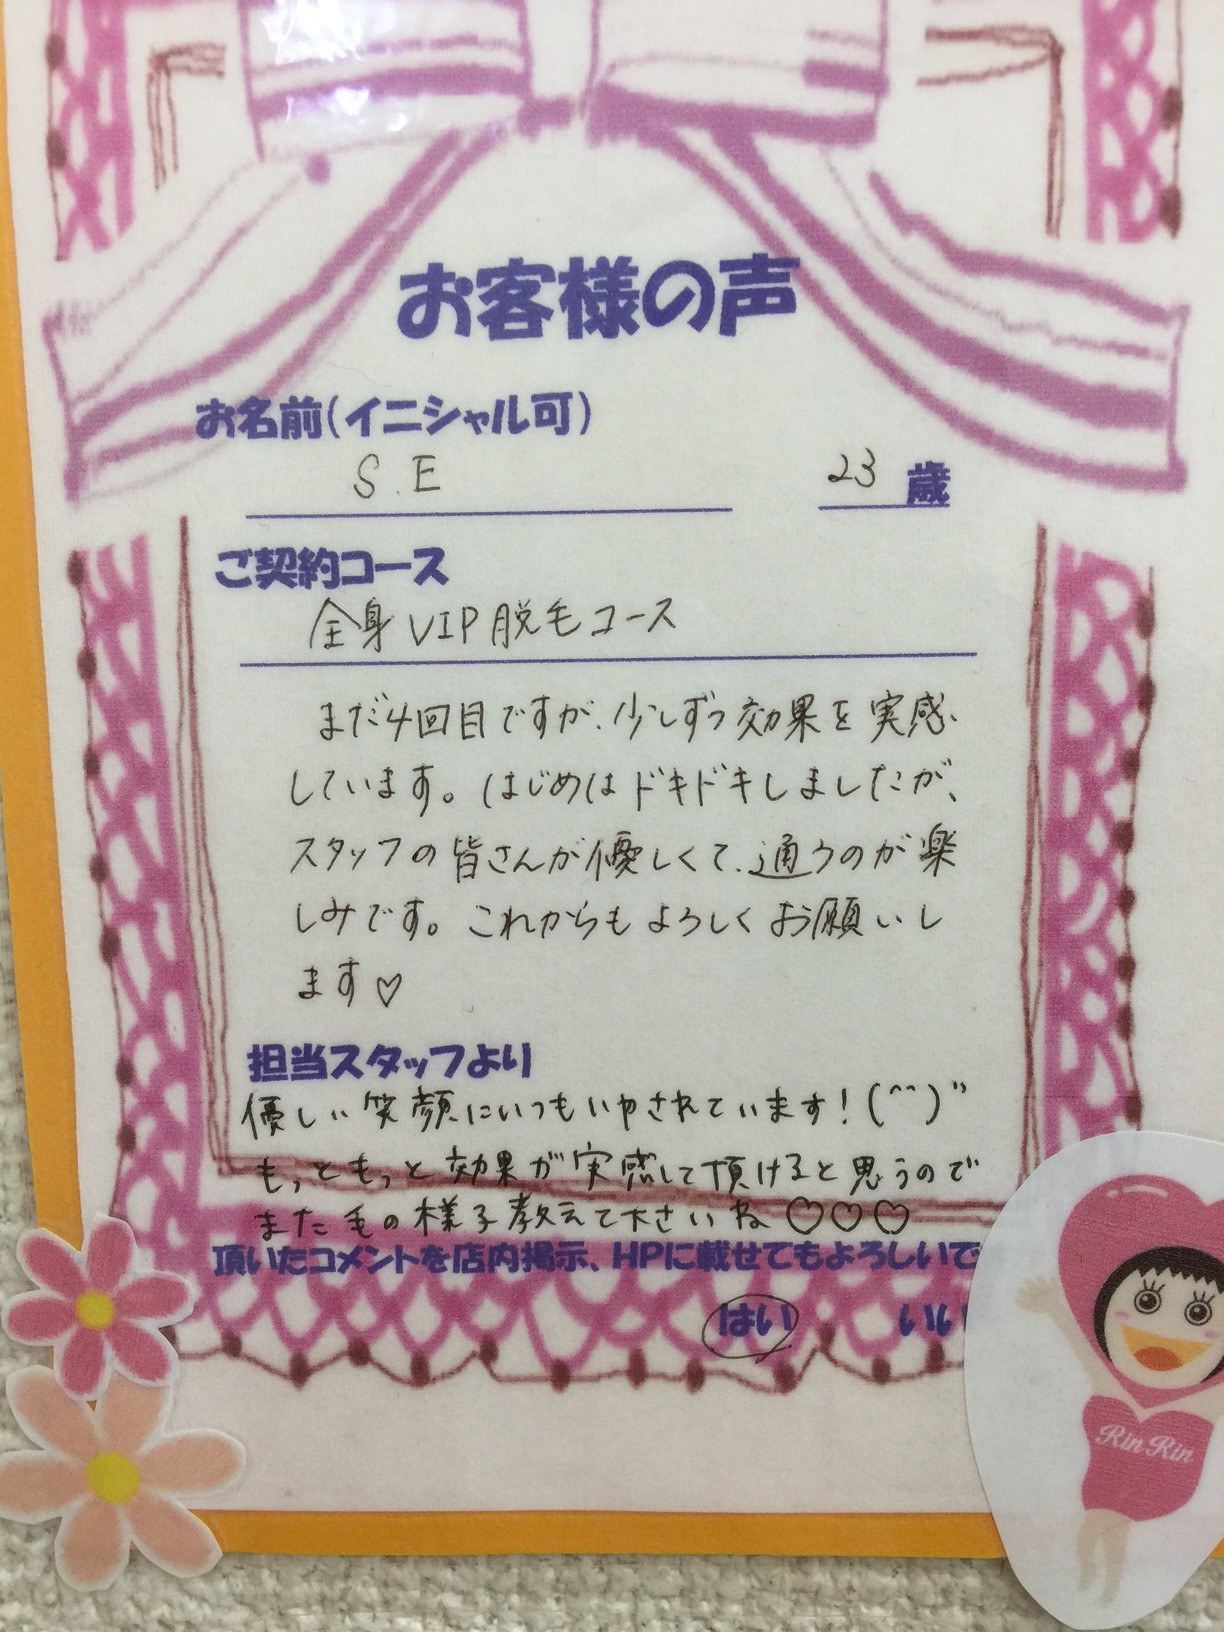 お客様の声
お名前(イニシャル可)
S.E 23 歳
ご契約コース
全身VIP脱毛コース
まだ4回目ですが、少しずつ効果を実感
しています。はじめはドキドキしましたが、
スタッフの皆さんが優しくて、通うのが楽
しみです。これからもよろしくお願いし
ます♡
担当スタッフより
優しい笑顔にいつもいやされています!(^^)"
もっともっと効果が実感して頂けると思うので
また毛の様子教えて下さいね♡♡♡
頂いたコメントを店内掲示、HPに載せてもよろしいで
はい いい
Rin Rin